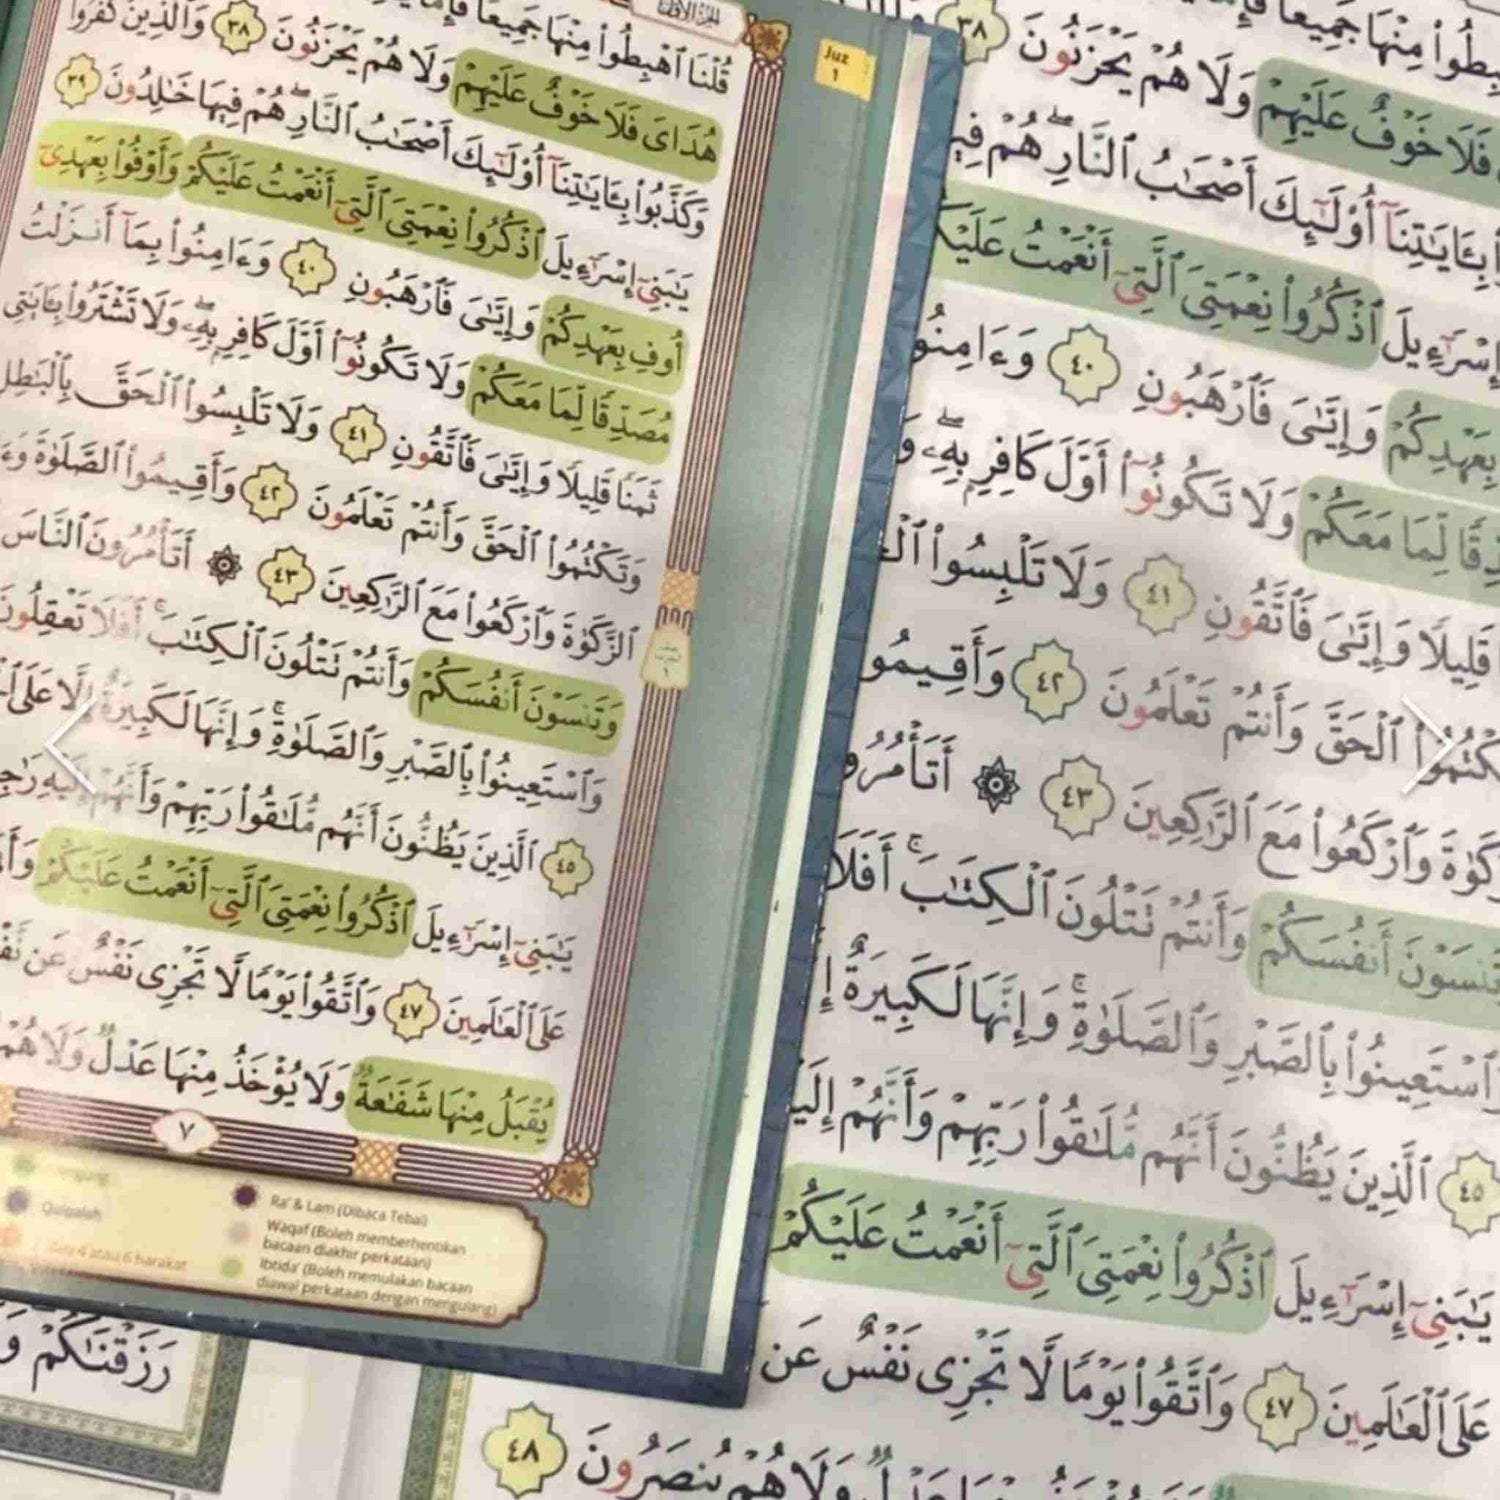 الجزء الأول
Juz
1
قُلْنَا ٱهْبِطُوا۟ مِنْهَا جَمِيعًا فَإِمَّا
هُدَاىَ فَلَا خَوْفٌ عَلَيْهِمْ وَلَا هُمْ يَحْزَنُونَ ٣٨ وَٱلَّذِينَ كَفَرُوا۟
وَكَذَّبُوا۟ بِـَٔايَـٰتِنَآ أُو۟لَـٰٓئِكَ أَصْحَـٰبُ ٱلنَّارِ ۖ هُمْ فِيهَا خَـٰلِدُونَ ٣٩
يَـٰبَنِىٓ إِسْرَٰٓءِيلَ ٱذْكُرُوا۟ نِعْمَتِىَ ٱلَّتِىٓ أَنْعَمْتُ عَلَيْكُمْ وَأَوْفُوا۟ بِعَهْدِىٓ
أُوفِ بِعَهْدِكُمْ وَإِيَّـٰىَ فَٱرْهَبُونِ ٤٠ وَءَامِنُوا۟ بِمَآ أَنزَلْتُ
مُصَدِّقًا لِّمَا مَعَكُمْ وَلَا تَكُونُوٓا۟ أَوَّلَ كَافِرٍۭ بِهِۦ ۖ وَلَا تَشْتَرُوا۟ بِـَٔايَـٰتِى
ثَمَنًا قَلِيلًا وَإِيَّـٰىَ فَٱتَّقُونِ ٤١ وَلَا تَلْبِسُوا۟ ٱلْحَقَّ بِٱلْبَـٰطِلِ
وَتَكْتُمُوا۟ ٱلْحَقَّ وَأَنتُمْ تَعْلَمُونَ ٤٢ وَأَقِيمُوا۟ ٱلصَّلَوٰةَ
ٱلزَّكَوٰةَ وَٱرْكَعُوا۟ مَعَ ٱلرَّٰكِعِينَ ٤٣ ۞ أَتَأْمُرُونَ ٱلنَّاسَ
وَتَنسَوْنَ أَنفُسَكُمْ وَأَنتُمْ تَتْلُونَ ٱلْكِتَـٰبَ ۚ أَفَلَا تَعْقِلُونَ
وَٱسْتَعِينُوا۟ بِٱلصَّبْرِ وَٱلصَّلَوٰةِ ۚ وَإِنَّهَا لَكَبِيرَةٌ إِلَّا عَلَى
ٱلَّذِينَ يَظُنُّونَ أَنَّهُم مُّلَـٰقُوا۟ رَبِّهِمْ وَأَنَّهُمْ إِلَيْهِ
٤٥
يَـٰبَنِىٓ إِسْرَٰٓءِيلَ ٱذْكُرُوا۟ نِعْمَتِىَ ٱلَّتِىٓ أَنْعَمْتُ عَلَيْكُمْ
عَلَى ٱلْعَـٰلَمِينَ ٤٧ وَٱتَّقُوا۟ يَوْمًا لَّا تَجْزِى نَفْسٌ عَن
يُقْبَلُ مِنْهَا شَفَـٰعَةٌ وَلَا يُؤْخَذُ مِنْهَا عَدْلٌ وَلَا هُمْ
٧
Qalqalah
atau 4 atau 6 harakat
Ra' & Lam (Dibaca Tebal)
Waqaf (Boleh memberhentikan
bacaan diakhir perkataan)
Ibtida' (Boleh memulakan bacaan
diawal perkataan dengan mengulang)
رَزَقْنَـٰكُمْ
مِنْهَا جَمِيعًا
فَلَا خَوْفٌ عَلَيْهِمْ وَلَا هُمْ يَحْزَنُونَ ٣٨
بِـَٔايَـٰتِنَآ أُو۟لَـٰٓئِكَ أَصْحَـٰبُ ٱلنَّارِ ۖ هُمْ
إِسْرَٰٓءِيلَ ٱذْكُرُوا۟ نِعْمَتِىَ ٱلَّتِىٓ أَنْعَمْتُ
بِعَهْدِكُمْ وَإِيَّـٰىَ فَٱرْهَبُونِ ٤٠
لِّمَا مَعَكُمْ وَلَا تَكُونُوٓا۟ أَوَّلَ كَافِرٍۭ بِهِۦ ۖ
قَلِيلًا وَإِيَّـٰىَ فَٱتَّقُونِ ٤١ وَلَا تَلْبِسُوا۟
ٱلْحَقَّ وَأَنتُمْ تَعْلَمُونَ ٤٢
وَٱرْكَعُوا۟ مَعَ ٱلرَّٰكِعِينَ ٤٣ ۞
أَنفُسَكُمْ وَأَنتُمْ تَتْلُونَ ٱلْكِتَـٰبَ ۚ أَفَلَا
بِٱلصَّبْرِ وَٱلصَّلَوٰةِ ۚ وَإِنَّهَا لَكَبِيرَةٌ
٤٥ ٱلَّذِينَ يَظُنُّونَ أَنَّهُم مُّلَـٰقُوا۟ رَبِّهِمْ وَأَنَّهُمْ
يَـٰبَنِىٓ إِسْرَٰٓءِيلَ ٱذْكُرُوا۟ نِعْمَتِىَ ٱلَّتِىٓ أَنْعَمْتُ عَلَيْكُمْ
عَلَى ٱلْعَـٰلَمِينَ ٤٧ وَٱتَّقُوا۟ يَوْمًا لَّا تَجْزِى نَفْسٌ عَن
وَلَا هُمْ يُنصَرُونَ ٤٨